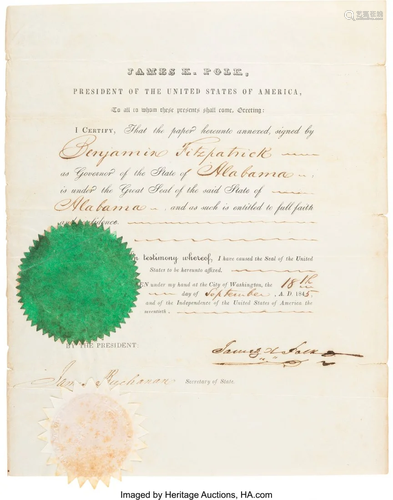 JAMES K. POLK,
PRESIDENT OF THE UNITED STATES OF AMERICA,
To all to whom these presents shall come, Greeting:
I CERTIFY, That the paper hereunto annexed, signed by
Benjamin Fitzpatrick
as Governor of the State of Alabama
is under the Great Seal of the said State of
Alabama and as such is entitled to full faith
testimony whereof, I have caused the Seal of the United
States to be hereunto affixed.
under my hand at the City of Washington, the 18th
day of September, A.D. 1845,
and of the Independence of the United States of America the
BY THE PRESIDENT:
James K. Polk
James Buchanan Secretary of State.
Imaged by Heritage Auctions, HA.com